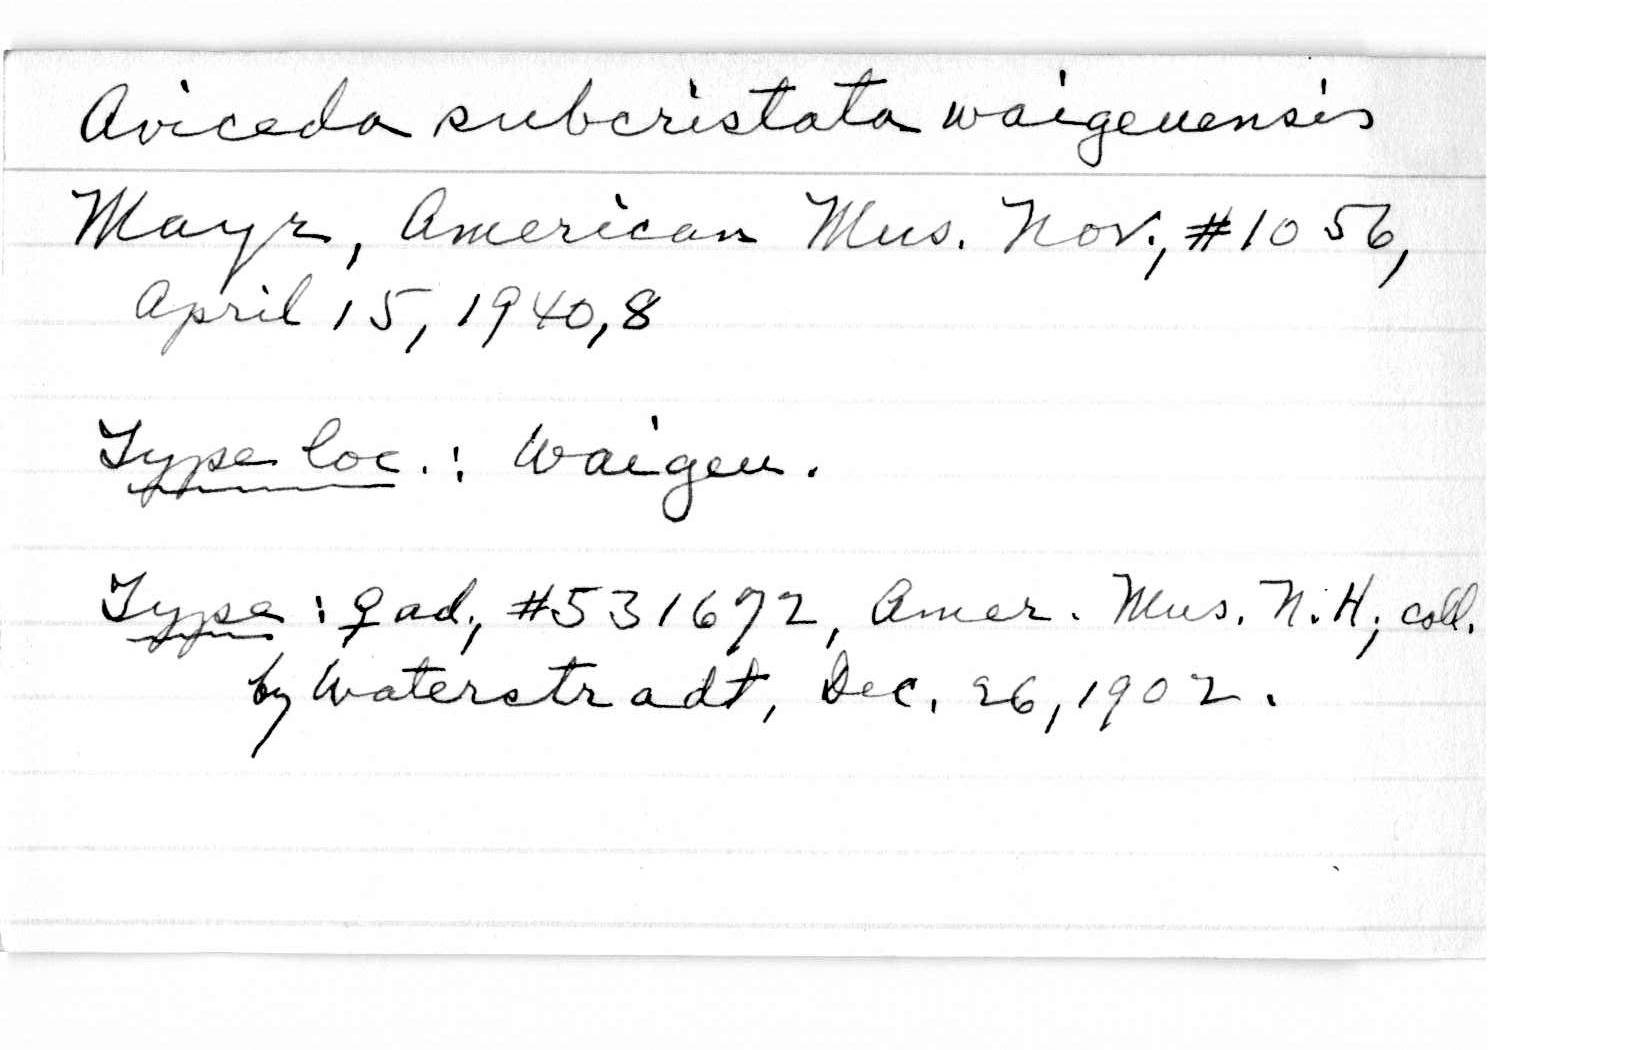 Aviceda subcristata waigeuensis
Mayr, American Mus. Nov., #1056,
April 15, 1940, 8
Type loc.: Waigeu.
Type: ♀ ad., #531672, Amer. Mus. N.H., coll.
by Waterstradt, Dec. 26, 1902.